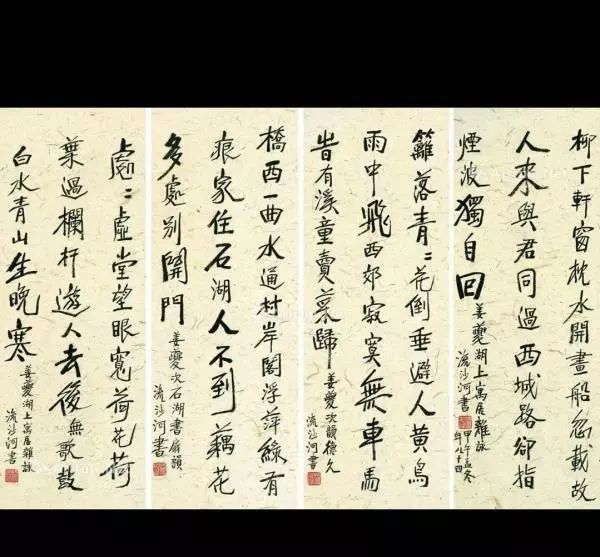 柳下軒窗枕水開畫船忽載故
人來與君同過西城路卻指
煙波獨自回
姜夔湖上寓居雜詠
流沙河書
甲午孟冬
年八十四
籬落青〻花倒垂避人黃鳥
雨中飛西郊寂寞無車馬
旹有溪童賣菜歸
姜夔次韻德久
流沙河書
橋西一曲水通村岸閣浮萍綠有
痕家住石湖人不到藕花
多處別開門
姜夔次石湖書扇韻
流沙河書
處〻虛堂望眼寬荷花荷
葉過欄杆遊人去後無歌鼓
白水青山生晚寒
姜夔湖上寓居雜詠
流沙河書